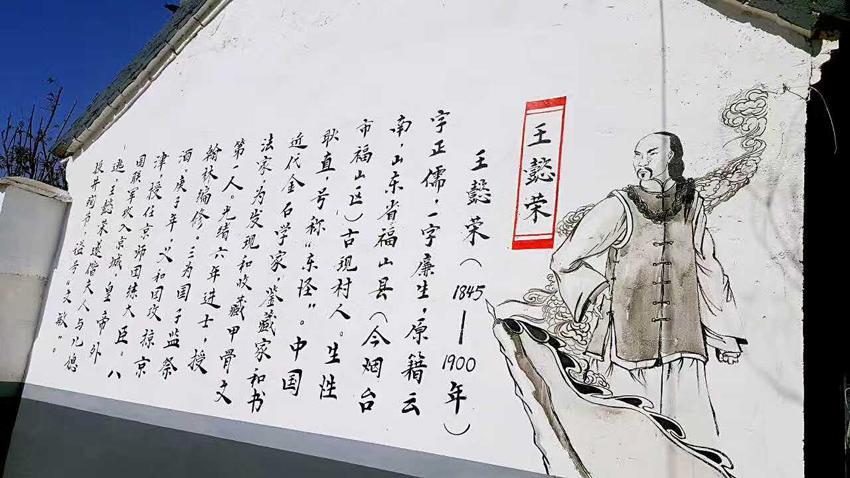 王懿荣
王懿荣（1845—1900年）
字正儒，一字廉生，原籍云
南，山东省福山县（今烟台
市福山区）古现村人。生性
耿直，号称“东怪”。中国
近代金石学家、鉴藏家和书
法家，为发现和收藏甲骨文
第一人。光绪六年进士，授
翰林编修。三为国子监祭
酒。庚子年，义和团攻掠京
津，授任京师团练大臣。八
国联军攻入京城，皇帝外
逃，王懿荣遂偕夫人与儿媳
投井殉节，谥号“文敏”。